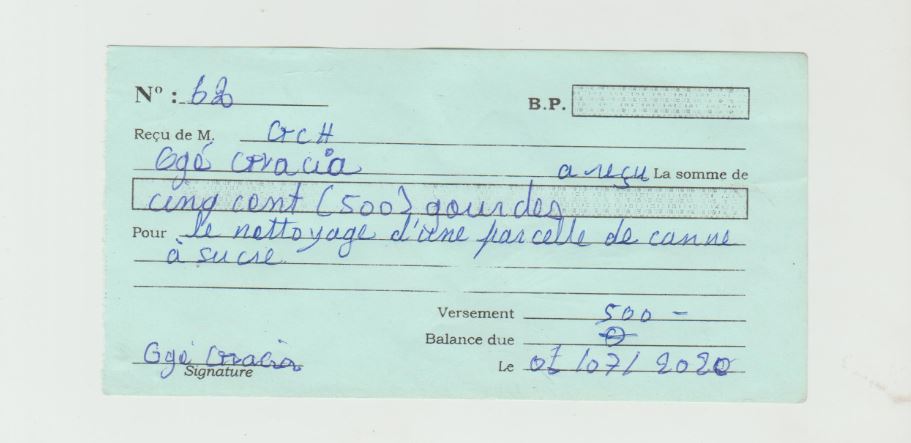 Nº : 62
B.P.
Reçu de M. GCH
Ogé Gracia a reçu La somme de
cinq cent (500) gourdes
Pour le nettoyage d'une parcelle de canne
à sucre
Versement 500 -
Balance due 0
Ogé Gracia
Signature
Le /07/2020